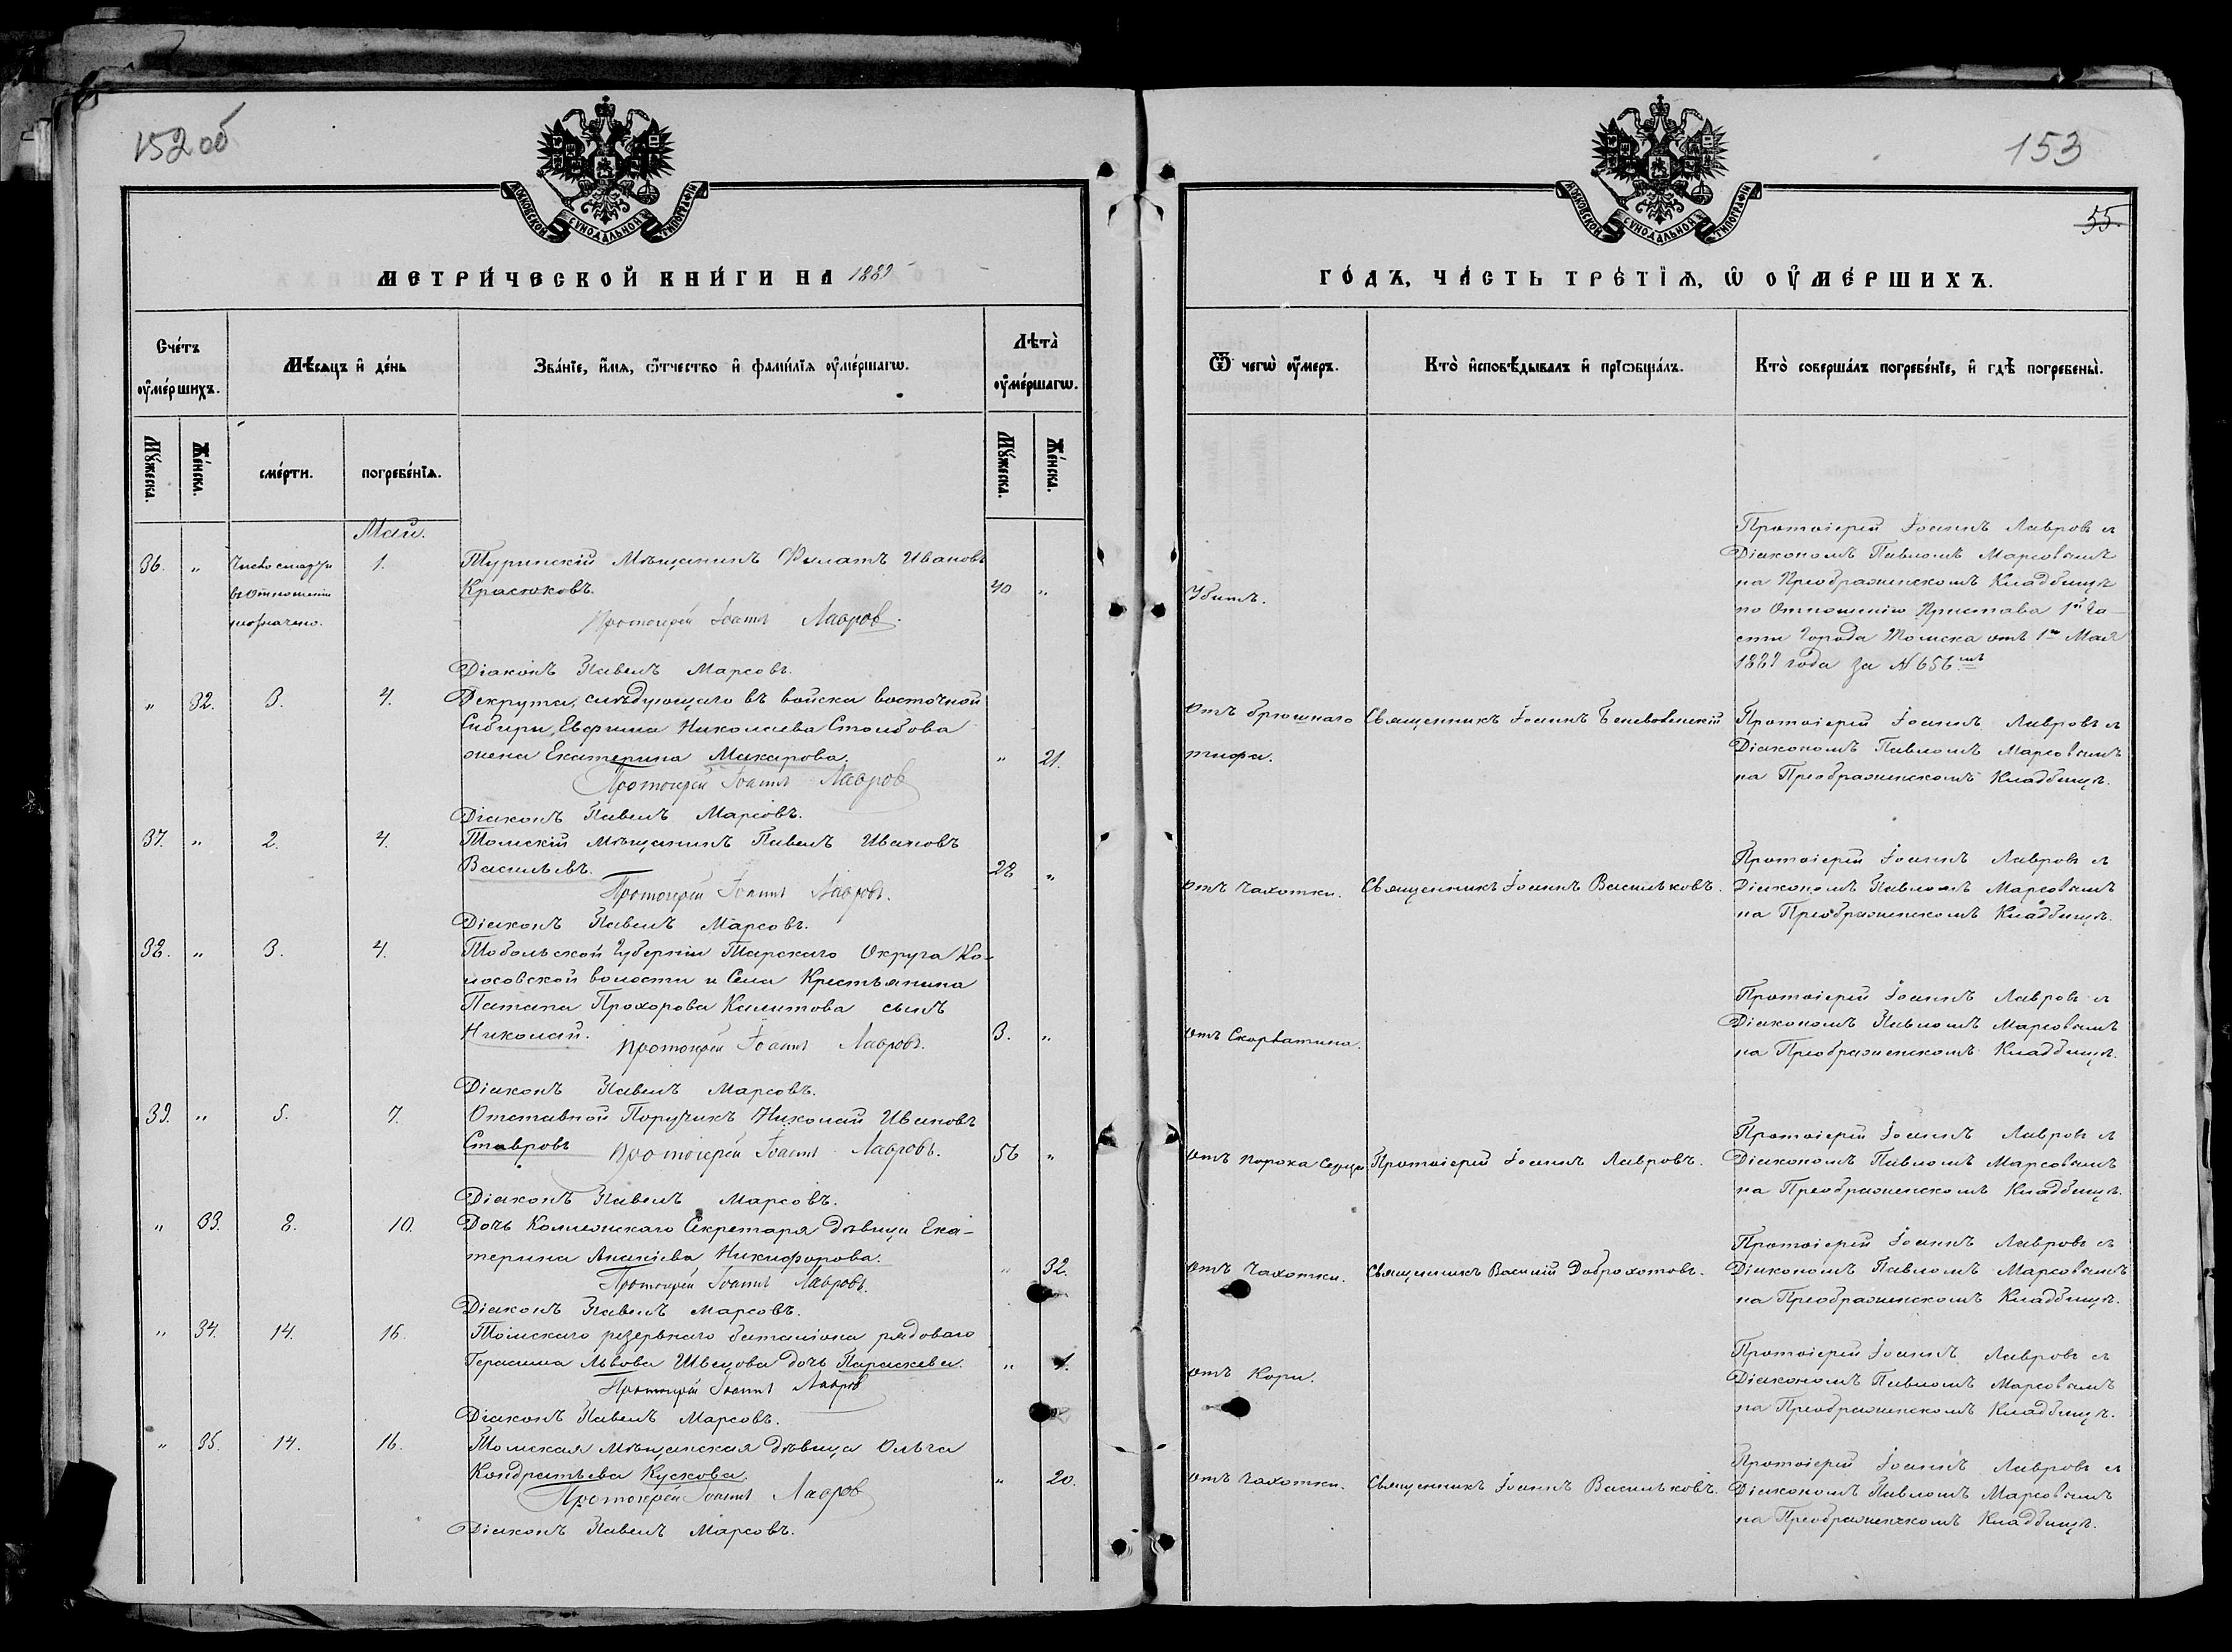 152 об
153
55.
МОСКОВСКОЙ СѴНОДАЛЬНОЙ ТИПОГРАФІИ
МОСКОВСКОЙ СѴНОДАЛЬНОЙ ТИПОГРАФІИ
МЕТРИ́ЧЕСКОЙ КНИ́ГИ НА 1889
ГО́ДЪ, ЧА́СТЬ ТРЕ́ТІѦ, Ѡ҆ ОУ҆МЕ́РШИХЪ.
Сче́тъ оу҆ме́ршихъ.
Мѣ́сяцъ и҆ де́нь
Зва́нїе, и҆́мѧ, ѻ҆́тчество и҆ фами́лїѧ оу҆ме́ршагѡ.
Лѣта̀ оу҆ме́ршагѡ.
Ѿ чегѡ̀ оу҆́меръ.
Кто̀ и҆сповѣ́дывалъ и҆ прїѡбща́лъ.
Кто̀ соверша́лъ погребе́нїе, и҆ гдѣ̀ погребены̀.
Мꙋ́жеска.
Же́нска.
сме́рти.
погребе́нїѧ.
Мꙋ́жеска.
Же́нска.
Май.
36. " Число смерти 1. Туринскій Мѣщанинъ Филатъ Ивановъ
въ отношеніи Красюковъ. 40 "
неозначено. Протоіерей Іоаннъ Лавровъ.
Діаконъ Павелъ Марсовъ.
Убитъ.
Протоіерей Іоаннъ Лавровъ съ
Діакономъ Павломъ Марсовымъ
на Преображенскомъ Кладбищѣ
по Отношенію Пристава 1й Ча-
сти Города Томска отъ 1го Мая
1889 года за № 656мъ
" 32. 3. 4. Рекрута, слѣдующаго въ войска восточной
Сибири, Евфима Николаева Столбова
жена Екатерина Макарова. " 21.
Протоіерей Іоаннъ Лавровъ
Діаконъ Павелъ Марсовъ.
Отъ брюшнаго Священникъ Іоаннъ Беневоленскій
тифа.
Протоіерей Іоаннъ Лавровъ съ
Діакономъ Павломъ Марсовымъ
на Преображенскомъ Кладбищѣ.
37. " 2. 4. Томскій Мѣщанинъ Павелъ Ивановъ
Васильевъ. 28 "
Протоіерей Іоаннъ Лавровъ.
Діаконъ Павелъ Марсовъ.
Отъ Чахотки. Священникъ Іоаннъ Васильковъ.
Протоіерей Іоаннъ Лавровъ съ
Діакономъ Павломъ Марсовымъ
на Преображенскомъ Кладбищѣ.
38. " 3. 4. Тобольской Губерніи Тарскаго Округа Ко-
лосовской волости и Села Крестьянина
Патапа Прохорова Калитова сынъ
Николай. 3. "
Протоіерей Іоаннъ Лавровъ.
Діаконъ Павелъ Марсовъ.
Отъ Скорлатина.
Протоіерей Іоаннъ Лавровъ съ
Діакономъ Павломъ Марсовымъ
на Преображенскомъ Кладбищѣ.
39. " 5. 7. Отставной Поручикъ Николай Ивановъ
Ставровъ 56 "
Протоіерей Іоаннъ Лавровъ.
Діаконъ Павелъ Марсовъ.
Отъ порока Сердца Протоіерей Іоаннъ Лавровъ.
Протоіерей Іоаннъ Лавровъ съ
Діакономъ Павломъ Марсовымъ
на Преображенскомъ Кладбищѣ.
" 33. 8. 10. Дочь Коллежскаго Секретаря дѣвица Ека-
терина Ананіева Никифорова. " 32.
Протоіерей Іоаннъ Лавровъ.
Діаконъ Павелъ Марсовъ.
Отъ Чахотки. Священникъ Василій Доброхотовъ.
Протоіерей Іоаннъ Лавровъ съ
Діакономъ Павломъ Марсовымъ
на Преображенскомъ Кладбищѣ.
" 34. 14. 16. Томскаго резервнаго баталіона рядоваго
Герасима Львова Швецова дочь Параскева. " 1.
Протоіерей Іоаннъ Лавровъ
Діаконъ Павелъ Марсовъ.
Отъ Кори.
Протоіерей Іоаннъ Лавровъ съ
Діакономъ Павломъ Марсовымъ
на Преображенскомъ Кладбищѣ.
" 35. 14. 16. Томская мѣщанская дѣвица Ольга
Кондратьева Кускова. " 20.
Протоіерей Іоаннъ Лавровъ
Діаконъ Павелъ Марсовъ.
Отъ Чахотки. Священникъ Іоаннъ Васильковъ.
Протоіерей Іоаннъ Лавровъ съ
Діакономъ Павломъ Марсовымъ
на Преображенскомъ Кладбищѣ.